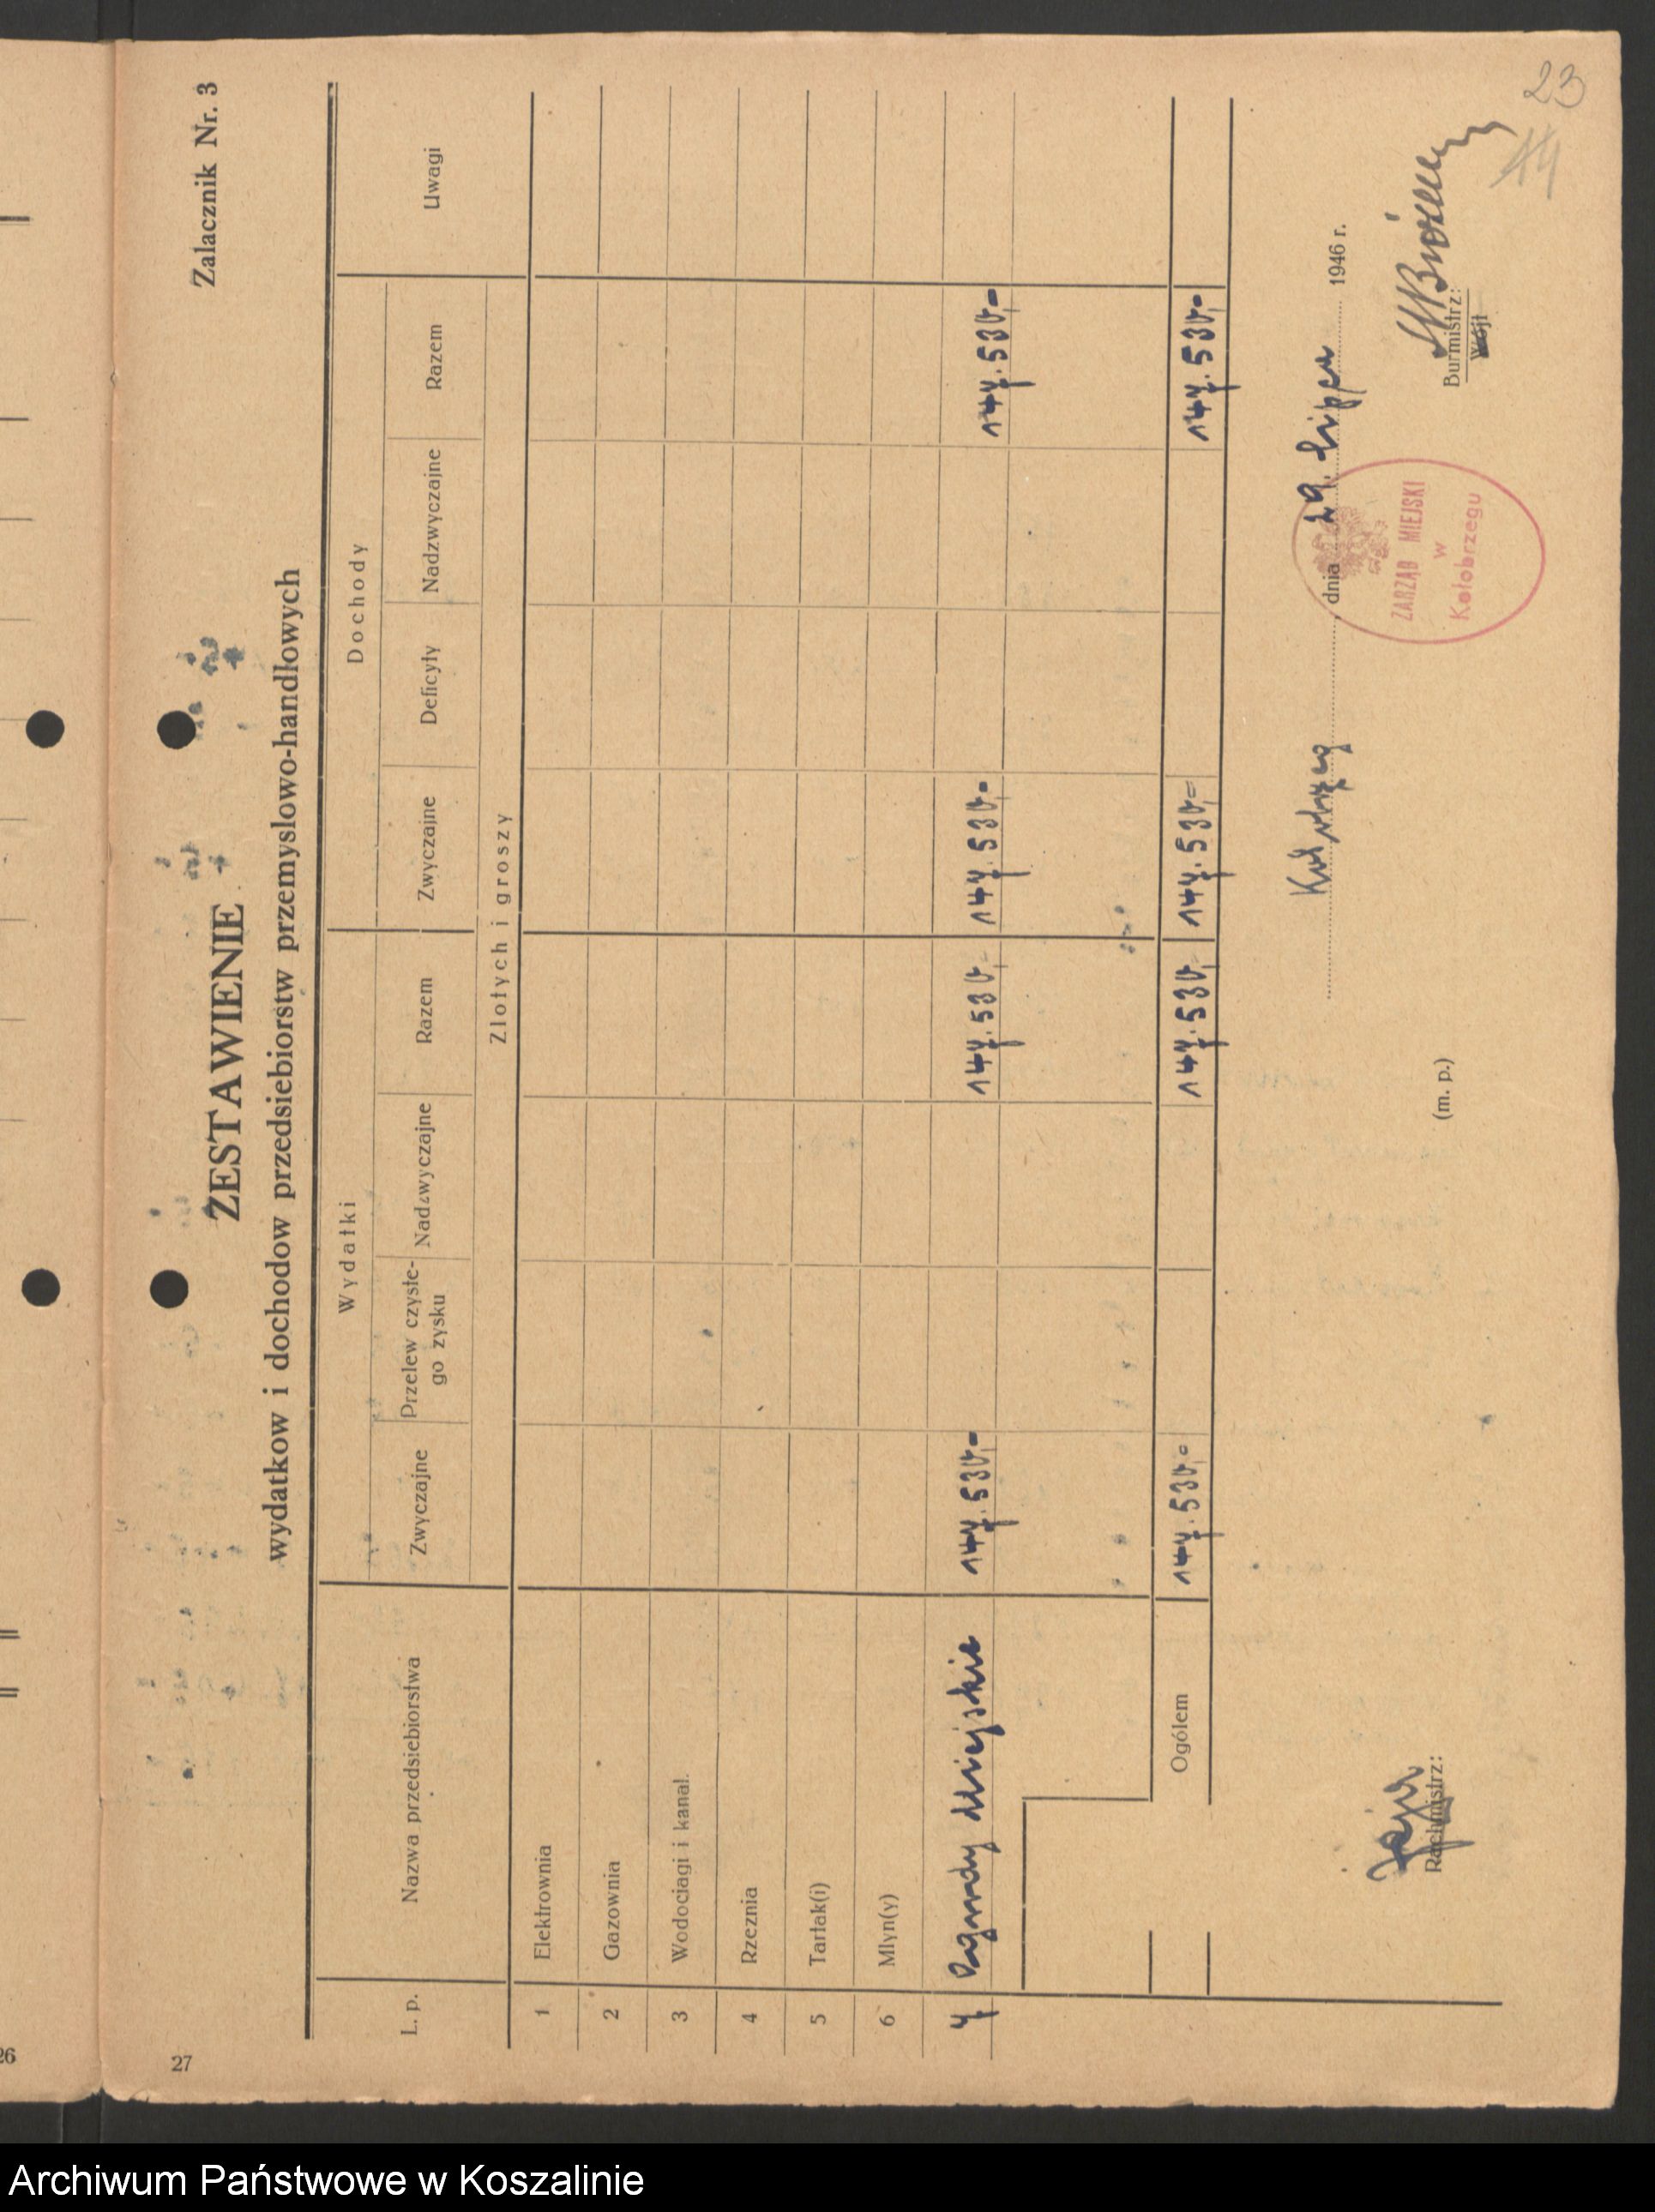 27
Zalacznik Nr. 3
ZESTAWIENIE
wydatkow i dochodow przedsiebiorstw przemyslowo-handlowych
L. p. Nazwa przedsiebiorstwa Wydatki Dochody Uwagi
Zwyczajne Przelew czyste- Nadzwyczajne Razem Zwyczajne Deficyty Nadzwyczajne Razem
go zysku
Zlotych i groszy
1 Elektrownia
2 Gazownia
3 Wodociagi i kanal.
4 Rzeznia
5 Tartak(i)
6 Mlyn(y)
7 Ogrody Miejskie 147.530,= 147.530,- 147.530,= 147.530,=
Ogólem 147.530,= 147.530,- 147.530,= 147.530,=
Kołobrzeg, dnia 29. lipca 1946 r.
ZARZĄD MIEJSKI
w
Kołobrzegu
Rachmistrz:
(m. p.)
Burmistrz:
Wójt
23
14
26
Archiwum Państwowe w Koszalinie